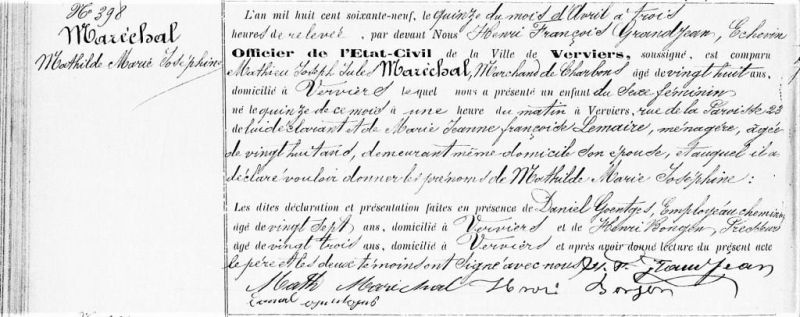 N° 398
Maréchal
Mathilde Marie Joséphine
L'an mil huit cent soixante-neuf, le quinze du mois d'Avril à trois
heures de relevée, par devant Nous Henri François Grandjean, Echevin
Officier de l'Etat-Civil de la Ville de Verviers, soussigné, est comparu
Mathieu Joseph Jules Maréchal, Marchand de Charbons âgé de vingt huit ans,
domicilié à Verviers lequel nous a présenté un enfant du sexe féminin
né le quinze de ce mois à une heure du matin à Verviers, rue de la Paroisse 23
de lui déclarant et de Marie Jeanne françoise Lemaire, ménagère, âgée
de vingt huit ans, demeurant même domicile son épouse, et auquel il a
déclaré vouloir donner les prénoms de Mathilde Marie Joséphine :
Les dites déclaration et présentation faites en présence de Daniel Goentges, Employé au chemin
âgé de vingt sept ans, domicilié à Verviers et de Henri Bongen,
âgé de vingt trois ans, domicilié à Verviers et après avoir donné lecture du présent acte
le père et les deux témoins ont signé avec nous H. F. Grandjean
Math Maréchal Henri Bongen